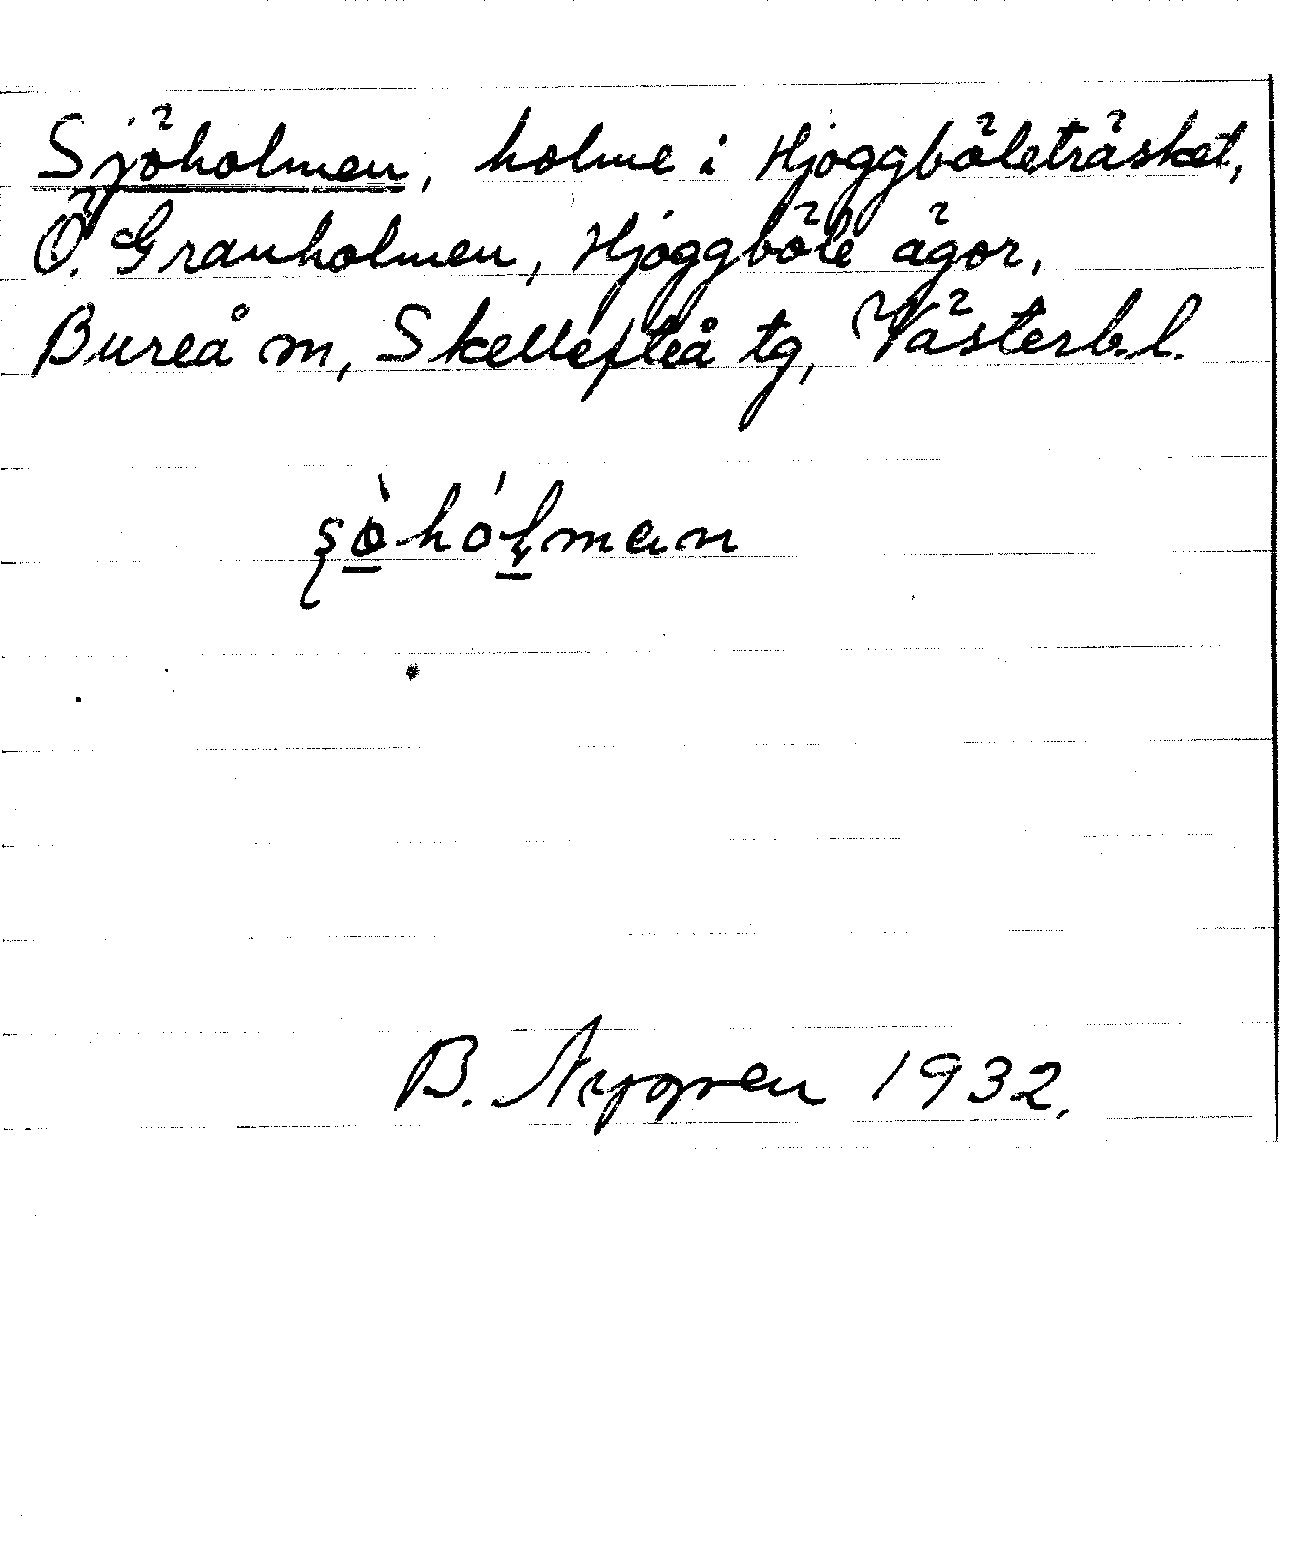 Sjöholmen, holme i Hjoggböleträsket,
Ö. Granholmen, Hjoggböle ägor,
Bureå m, Skellefteå tg, Västerb.l.
B. Nygren 1932.